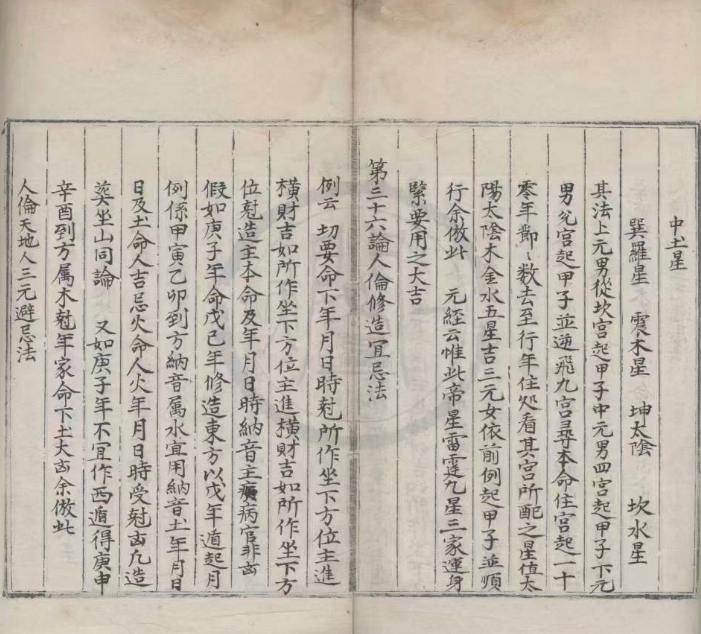 中土星
巽羅星　震木星　坤太陰　坎水星
其法上元男從坎宮起甲子中元男四宮起甲子下元
男兊宮起甲子並逆飛九宮尋本命住宮起一十
零年節〻数去至行年住処看其宮所配之星值太
陽太陰木金水五星吉三元女依前例起甲子並順
行余倣此　元経云惟此帝星雷霆九星三家運身
緊要用之大吉
第三十六論人倫修造宜忌法
例云　切要命下年月日時尅所作坐下方位主進
橫財吉如所作坐下方位主進橫財吉如所作坐下方
位尅造主本命及年月日時納音主瘨病官非凶
假如庚子年命戊己年修造東方以戊年遁起月
例係甲寅乙卯到方納音属水宜用納音土年月日
日及土命人吉忌火命人火年月日時受尅凶凢造
葬坐山同論　又如庚子年不宜作西遁得庚申
辛酉到方属木尅年家命下土大凶余倣此
人倫天地人三元避忌法